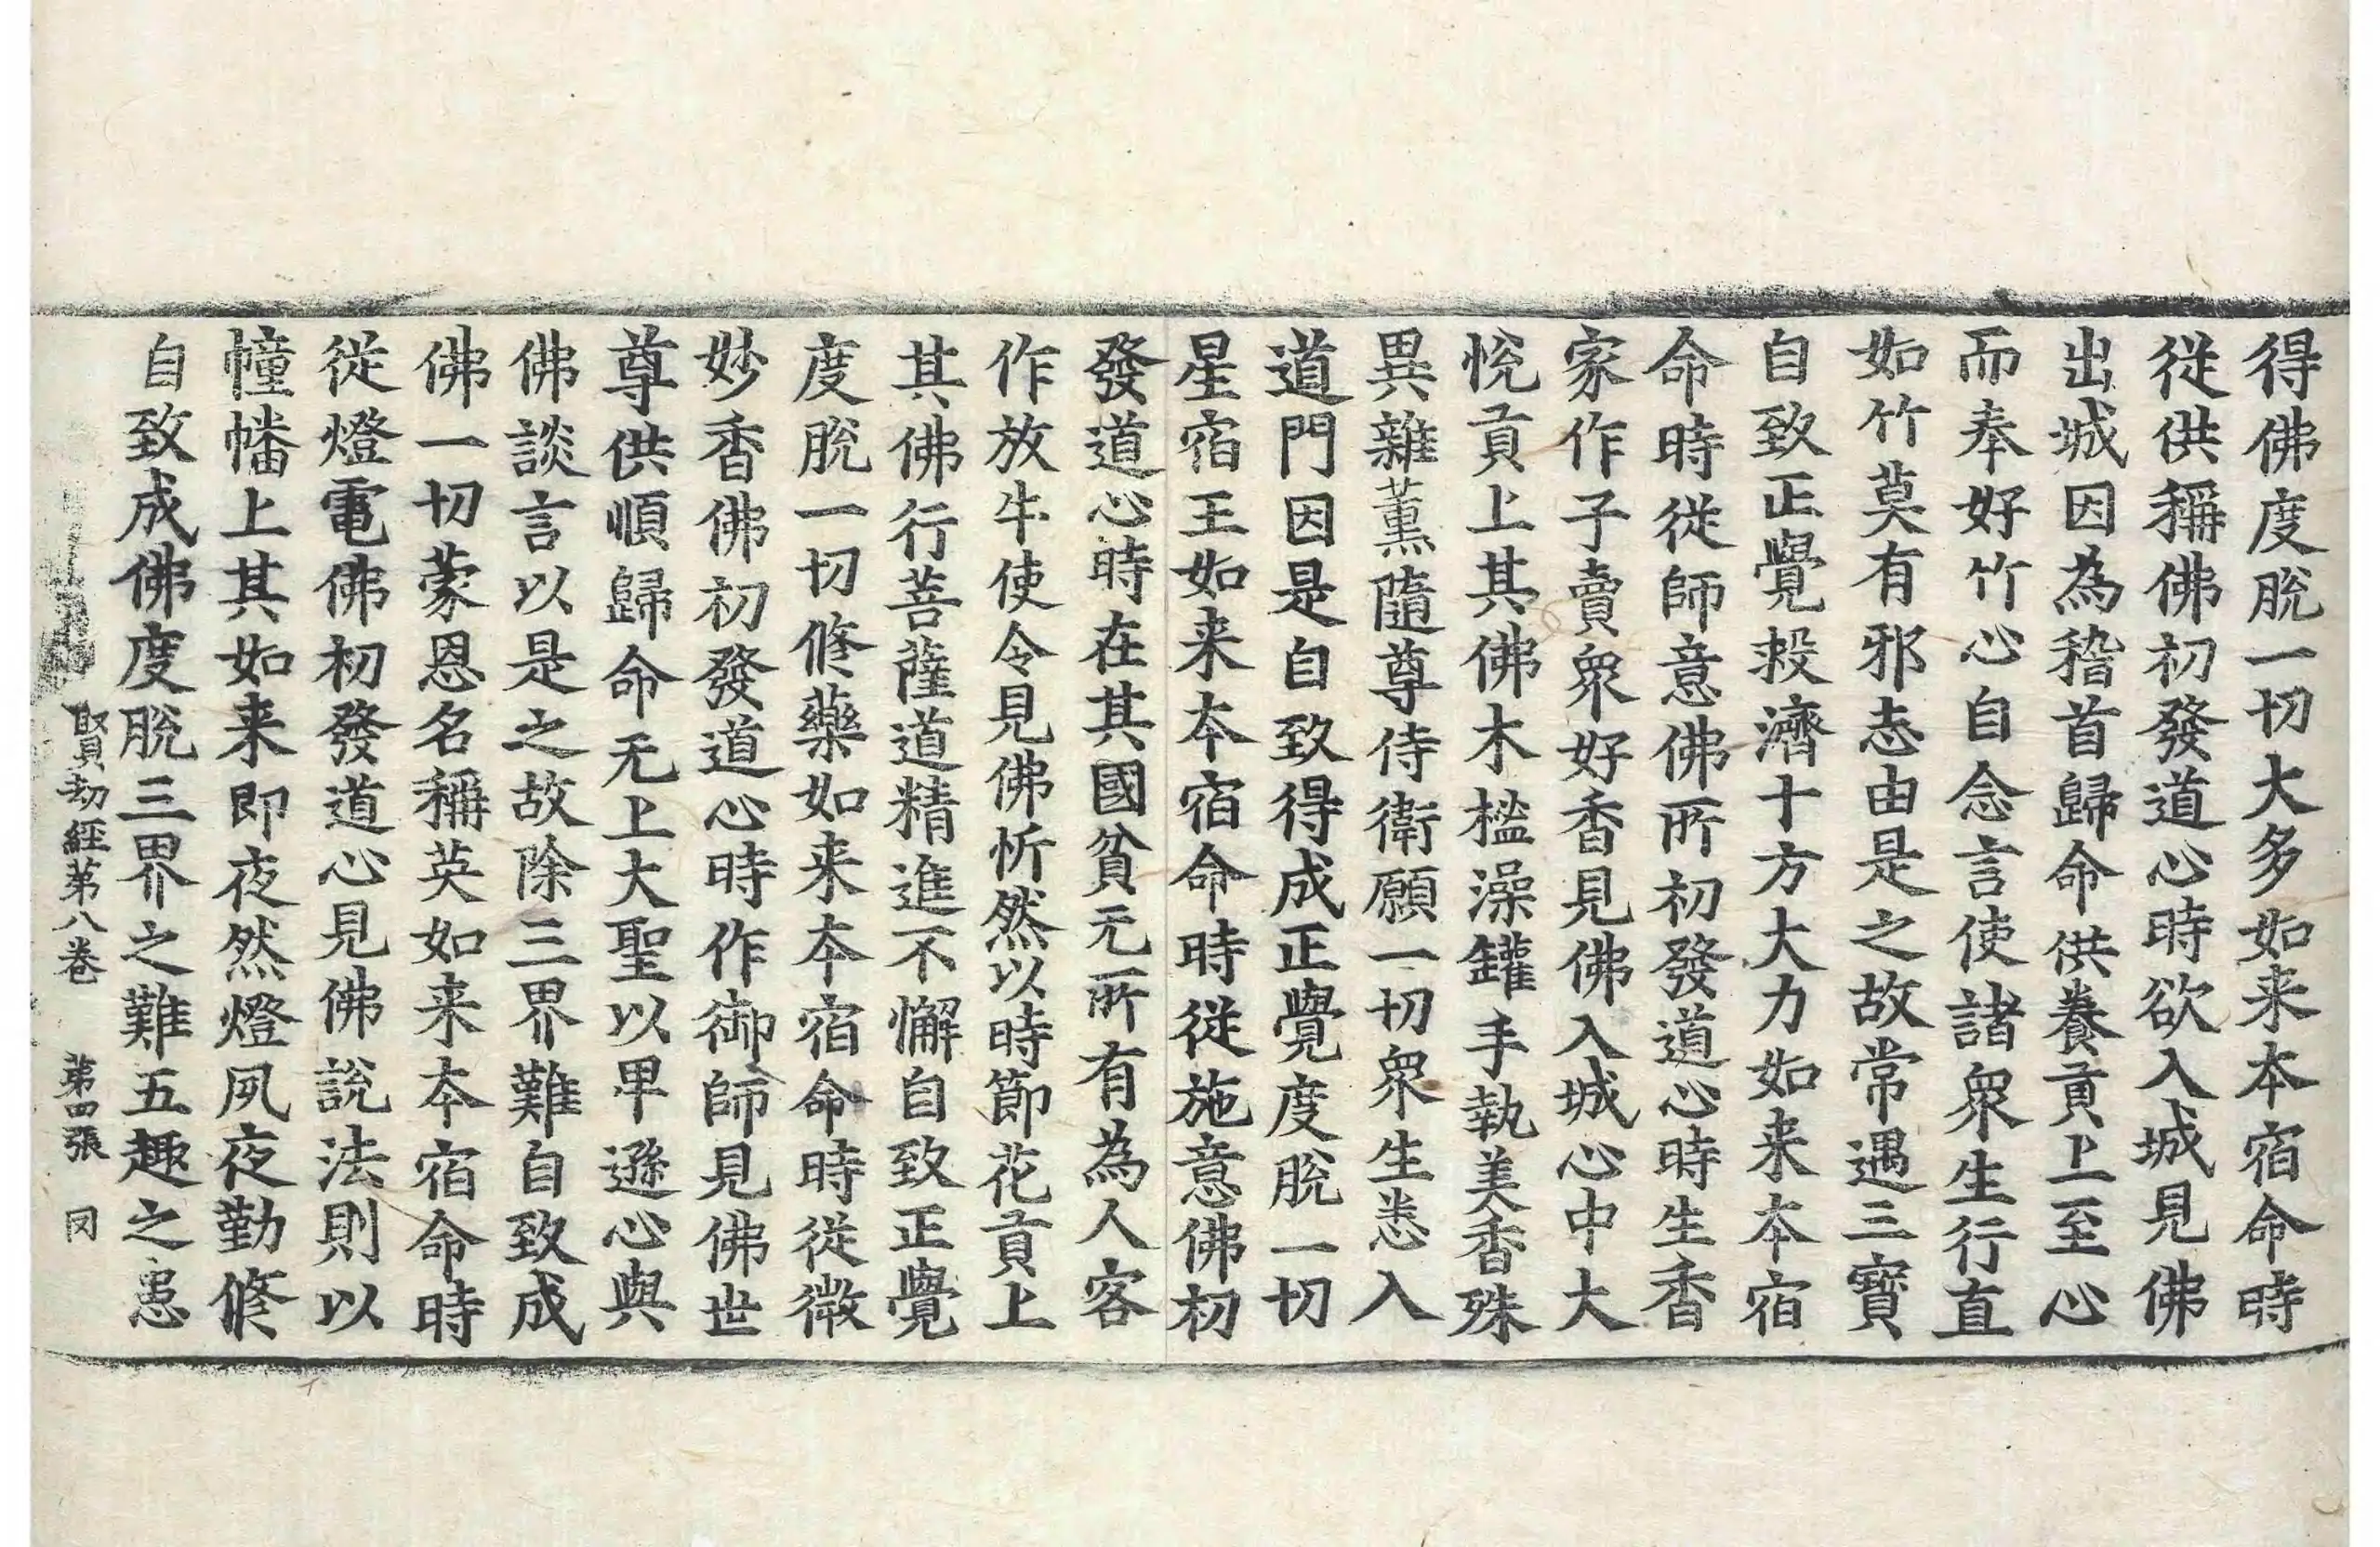 得佛度脫一切大多如来本宿命時
従供稱佛初發道心時欲入城見佛
出城因為稽首歸命供養貢上至心
而奉好竹心自念言使諸衆生行直
如竹莫有邪志由是之故常遇三寶
自致正覺救濟十方大力如来本宿
命時従師意佛所初發道心時生香
家作子賣衆好香見佛入城心中大
悅貢上其佛木榓澡罐手執美香殊
異雜薰隨尊侍衛願一切衆生悉入
道門因是自致得成正覺度脫一切
星宿王如来本宿命時従施意佛初
發道心時在其國貧无所有為人客
作放牛使令見佛忻然以時節花貢上
其佛行菩薩道精進不懈自致正覺
度脫一切修藥如来本宿命時従微
妙香佛初發道心時作御師見佛世
尊供順歸命无上大聖以畢遜心與
佛談言以是之故除三界難自致成
佛一切蒙恩名稱英如来本宿命時
従燈電佛初發道心見佛說法則以
幢幡上其如来即夜然燈夙夜勤修
自致成佛度脫三界之難五趣之患
賢劫經第八卷 第四張 冈